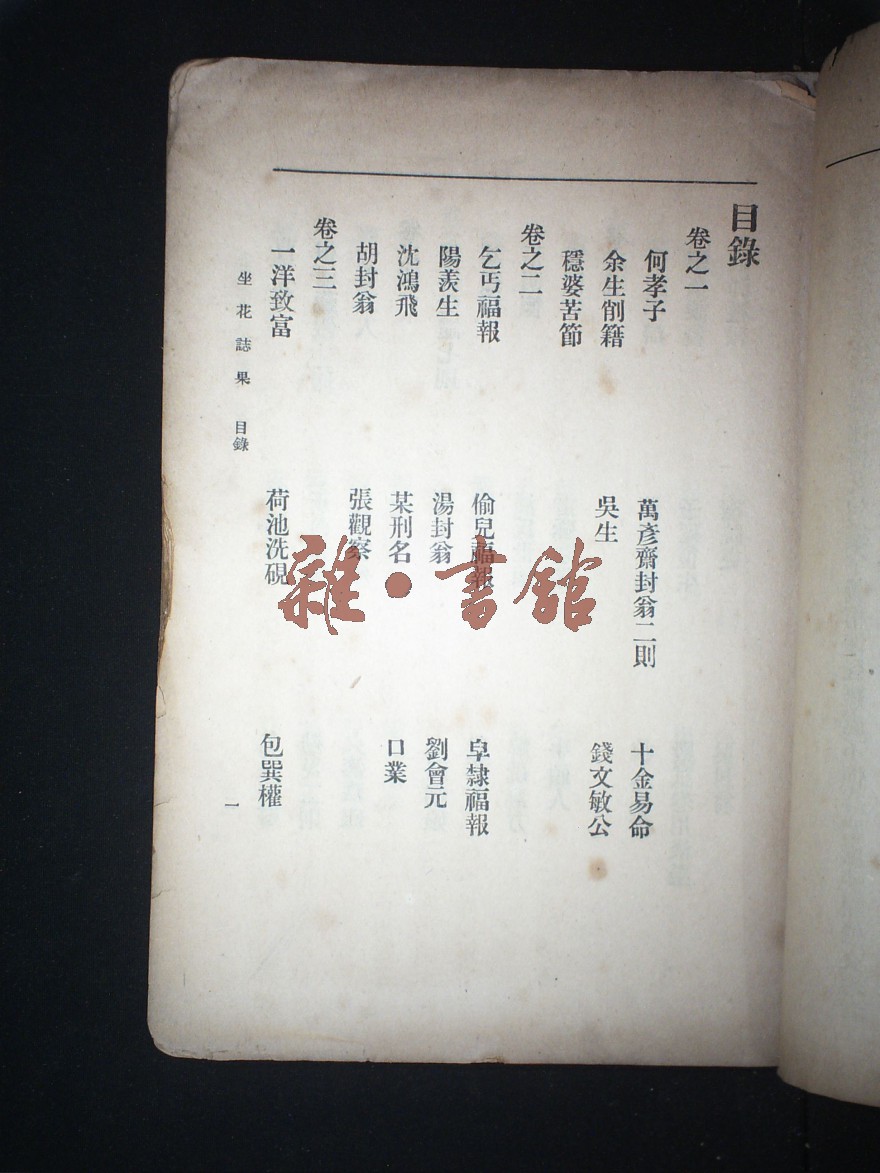 目錄
卷之一
何孝子　萬彥齋封翁二則　十金易命
余生削籍　吳生　錢文敏公
穩婆苦節
卷之二
乞丐福報　偷兒福報　皁隸福報
陽羨生　湯封翁　劉會元
沈鴻飛　某刑名　口業
胡封翁　張觀察
卷之三
一洋致富　荷池洗硯　包巽權
坐花誌果　目錄　一
雜·書館